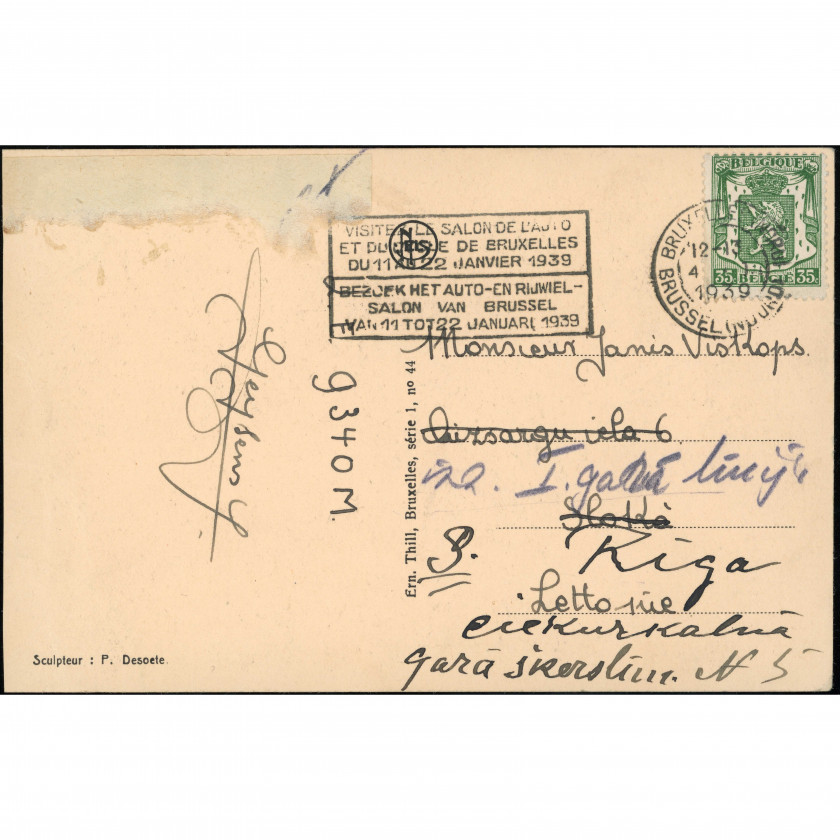 VISITEZ LE SALON DE L'AUTO
ET DU CYCLE DE BRUXELLES
DU 11 AU 22 JANVIER 1939
BEZOEK HET AUTO-EN RIJWIEL-
SALON VAN BRUSSEL
VAN 11 TOT 22 JANUARI 1939
BELGIQUE
35 BELGIE 35
12-13
4
1939
BRUSSEL (NOORD)
Monsieur Janis Viskops.
Aizsargu iela 6
I. garā līnij
Sloka
Rīga
Lettonie
ciekurkalnā
garā škerslin. N 5
Ern. Thill, Bruxelles, série 1, no 44
9340 M.
Sculpteur : P. Desoete.